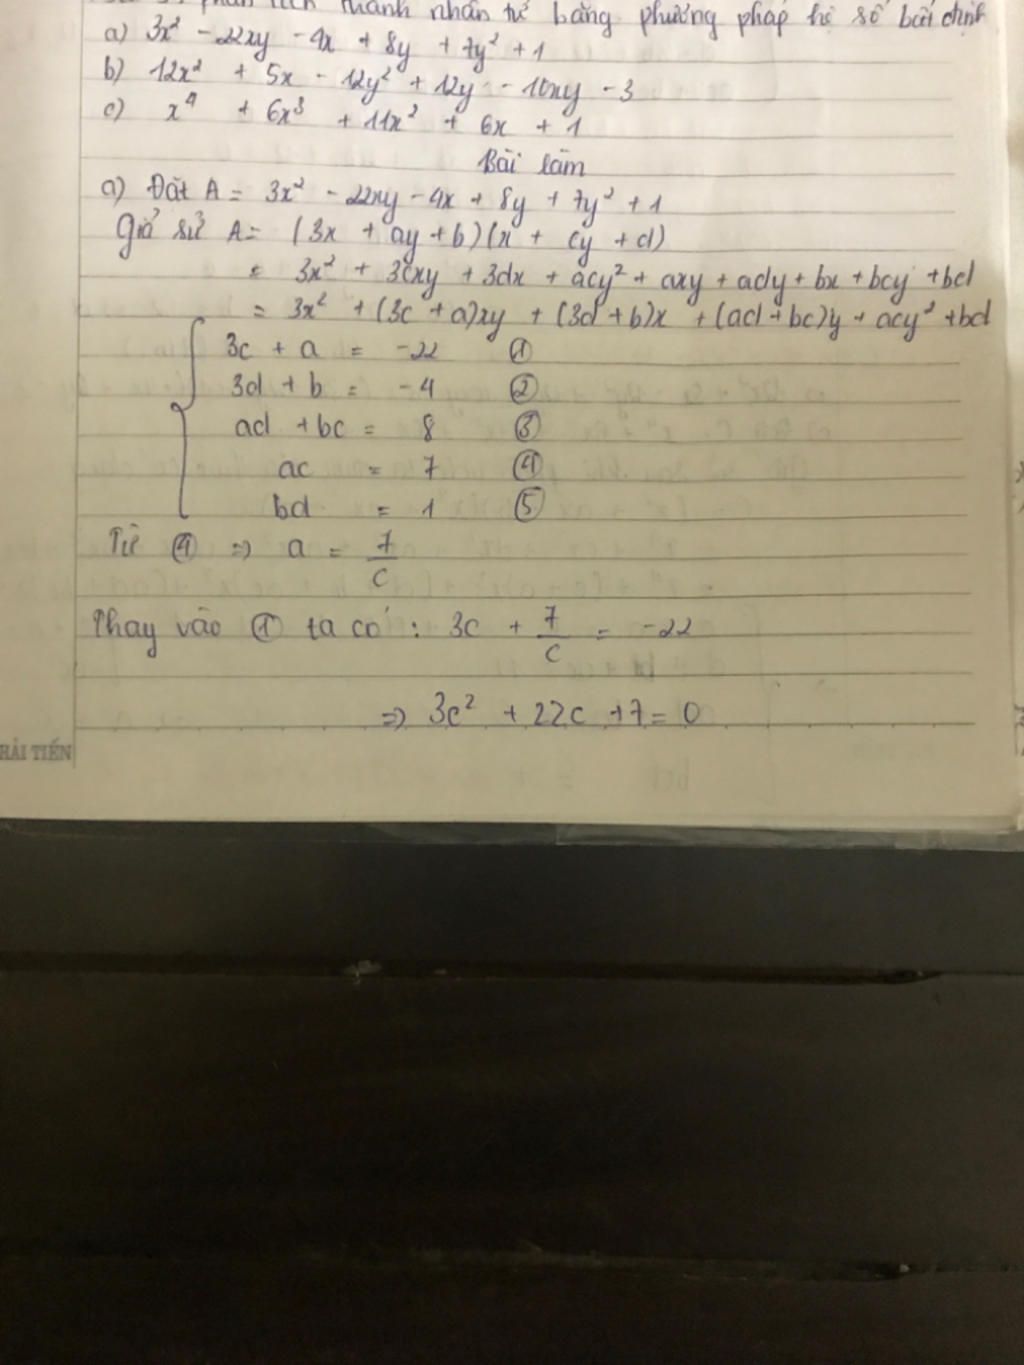 phân tích thành nhân tử bằng phương pháp hệ số bất định
a) 3x² - 22xy - 4x + 8y + 7y² + 1
b) 12x² + 5x - 12y² + 12y - 10xy - 3
c) x⁴ + 6x³ + 11x² + 6x + 1
Bài làm
a) Đặt A = 3x² - 22xy - 4x + 8y + 7y² + 1
Giả sử A = (3x + ay + b)(x + cy + d)
= 3x² + 3cxy + 3dx + acy² + axy + ady + bx + bcy + bd
= 3x² + (3c + a)xy + (3d + b)x + (ad + bc)y + acy² + bd
3c + a = -22 ①
3d + b = -4 ②
ad + bc = 8 ③
ac = 7 ④
bd = 1 ⑤
Từ ④ => a = 7/c
Thay vào ① ta có : 3c + 7/c = -22
=> 3c² + 22c + 7 = 0
HẢI TIẾN